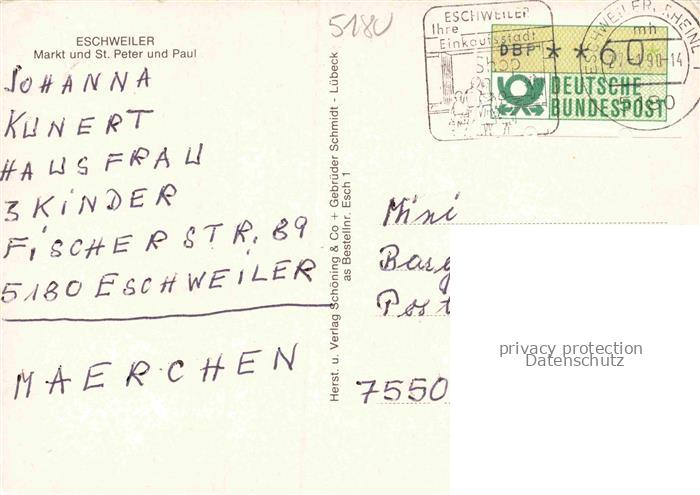 ESCHWEILER
Markt und St. Peter und Paul
JOHANNA
KUNERT
HAUSFRAU
3 KINDER
FISCHERSTR. 89
5180 ESCHWEILER
MAERCHEN
Herst. u. Verlag Schöning & Co + Gebrüder Schmidt - Lübeck
as Bestellnr. Esch 1
5180
ESCHWEILER
Ihre
Einkaufsstadt
Shop
DBP **60*
DEUTSCHE
BUNDESPOST
ESCHWEILER, RHEINL 1
mh
90-14
5180
Mini
Post
7550
privacy protection
Datenschutz